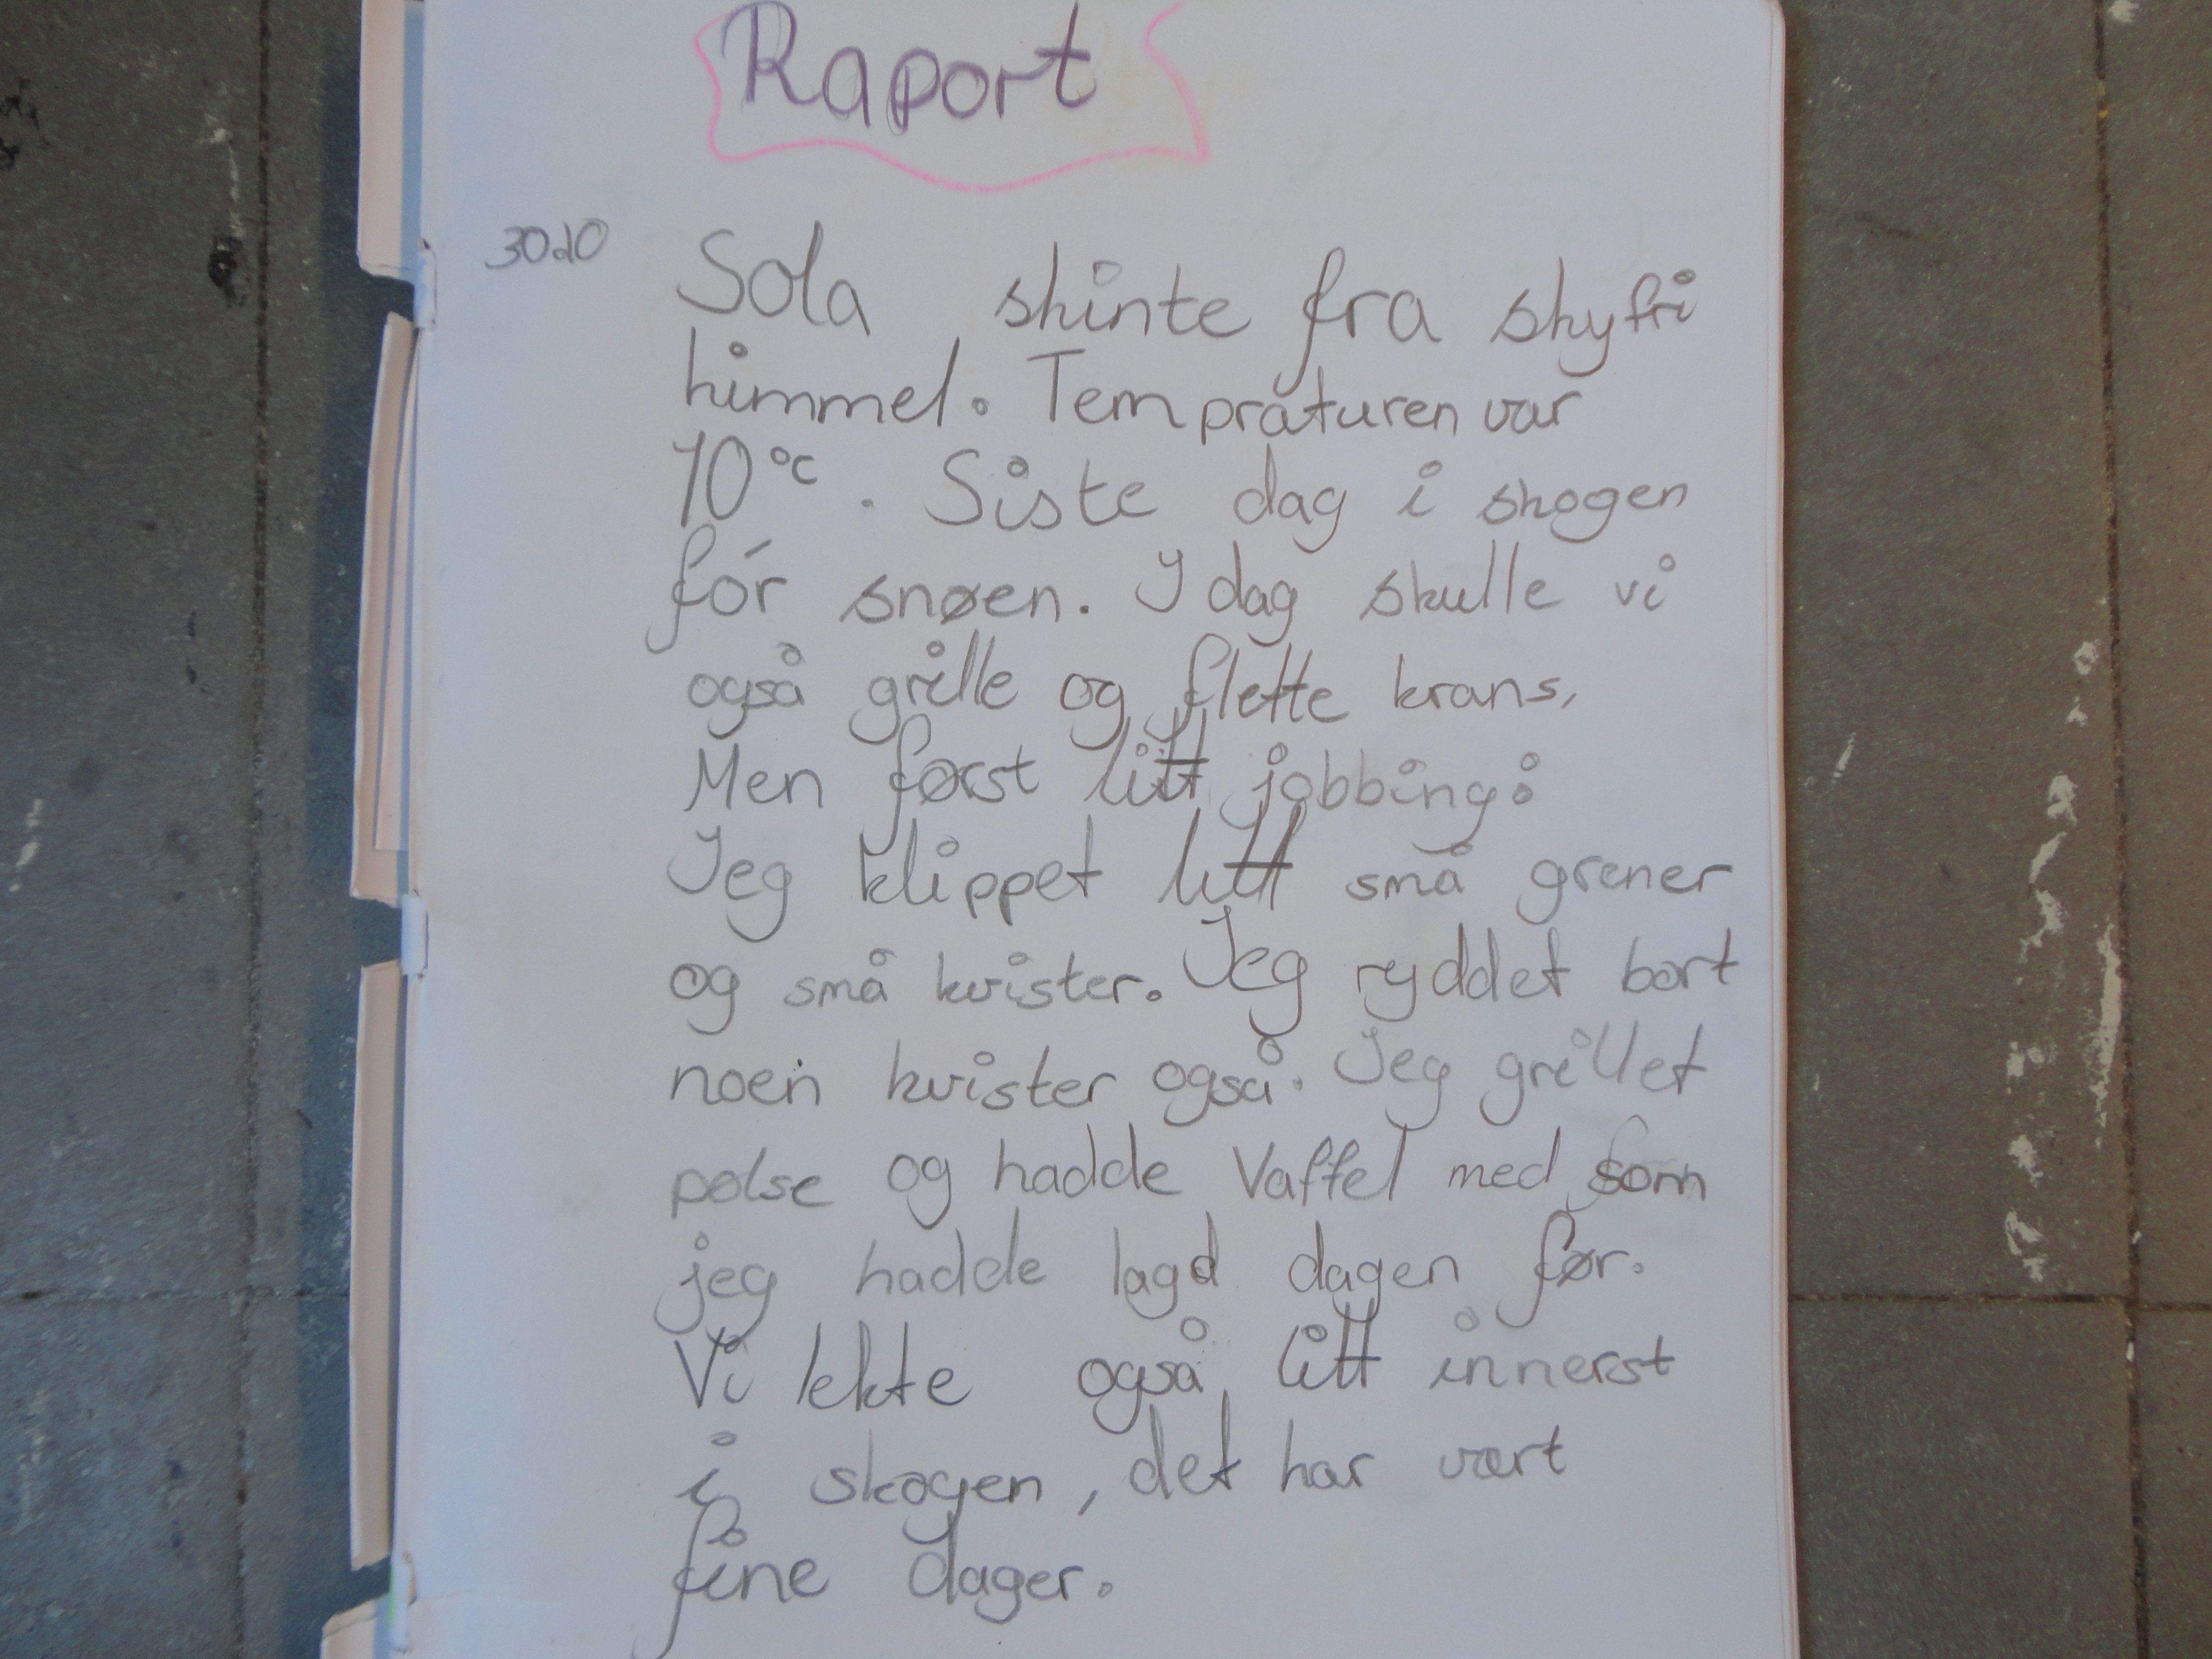 Raport
30.10 Sola skinte fra skyfri
himmel. Tempraturen var
10°c. Siste dag i skogen
fór snøen. I dag skulle vi
også grille og flette krans,
Men først litt jobbing:
Jeg klippet litt små grener
og små kvister. Jeg ryddet bort
noen kvister også. Jeg grillet
pølse og hadde Vaffel med som
jeg hadde lagd dagen før.
Vi lekte også litt innerst
i skogen, det har vært
fine dager.